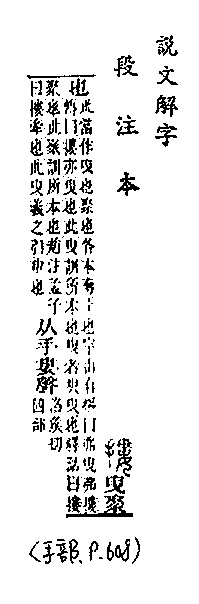 説文解字
段注本
摟曳聚
也此當作曳也聚也各本奪上也字山有樞曰弗曳弗摟
傳曰摟亦曳也此曳訓所本也曳者臾曳也釋詁曰摟
聚也此聚訓所本也趙注孟子
曰摟牽也此曳義之引申也
从手婁聲
洛侯切
四部
(手部、P.608)